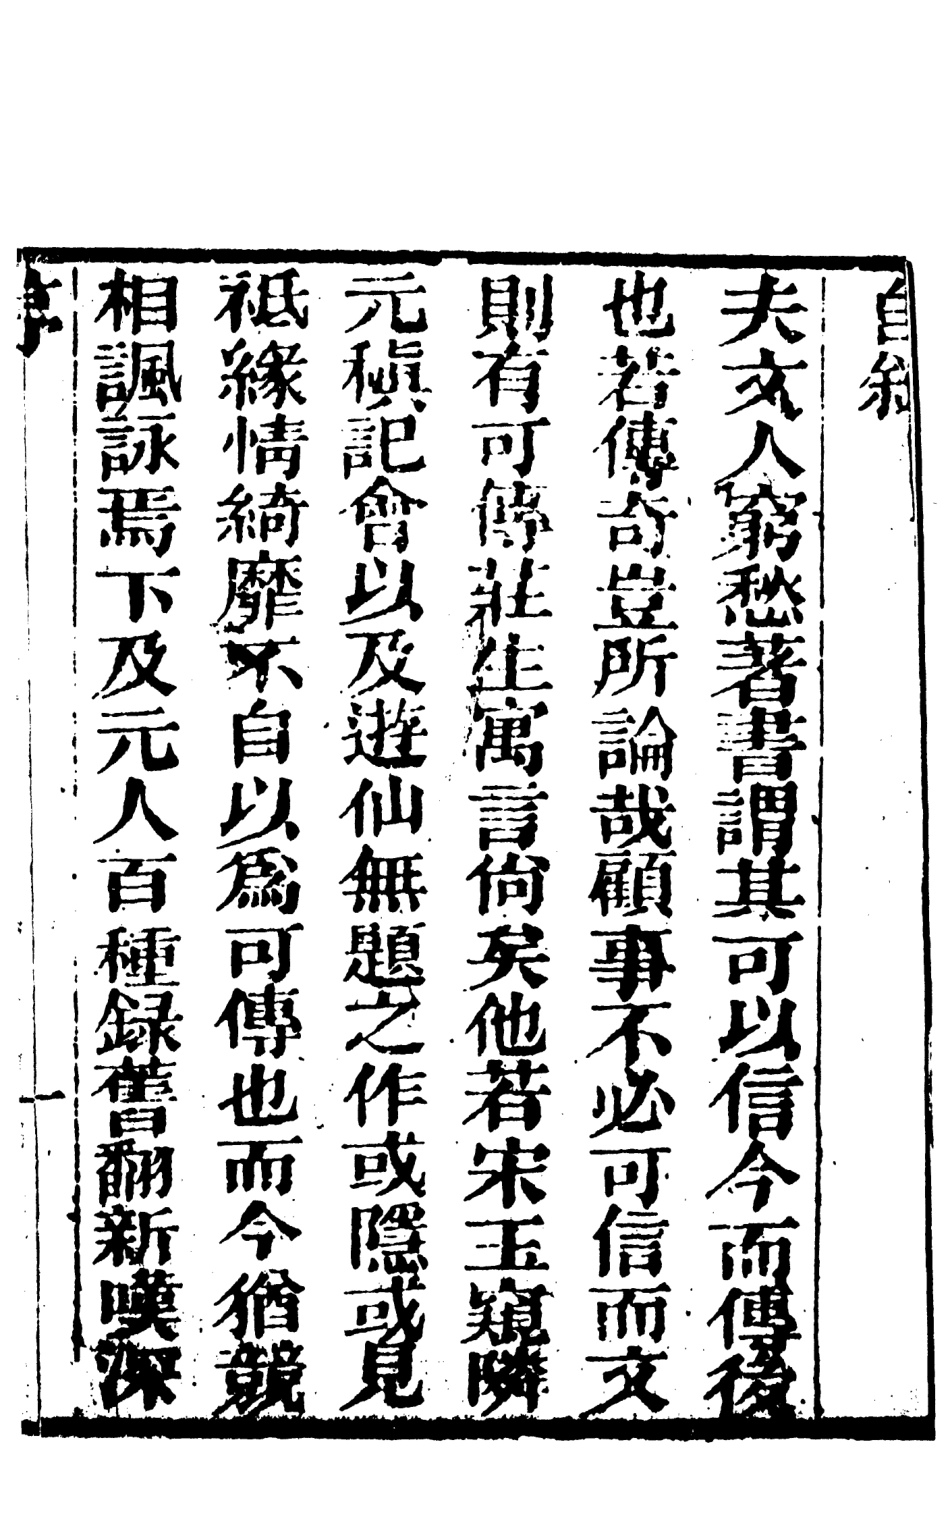 自叙
夫文人窮愁著書謂其可以信今而傳後
也若傳奇豈所論哉顧事不必可信而文
則有可傳莊生寓言尙矣他若宋玉窺隣
元稹記會以及遊仙無題之作或隱或見
祗緣情綺靡不自以爲可傳也而今猶競
相諷詠焉下及元人百種録舊翻新嘆深
序
一